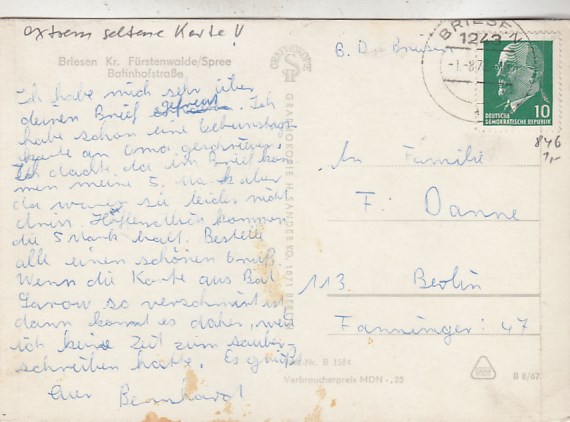 extrem seltene Karte!
Briesen Kr. Fürstenwalde/Spree
Bahnhofstraße
Ich habe mich sehr über
deinen Brief gefreut. Ich
habe schon eine Geburtstags
karte an Oma geschrieben.
Ich dachte da im Brief kom
men meine 5. Mark aber
da waren sie leider nicht
drin. Hoffendlich kommen
die 5 Mark bald. Bestelle
alle einen schönen Gruß.
Wenn die Karte aus Bad
Sarow so verschmiert ist
dann kommt es daher, weil
ich keine Zeit zum sauber
schreiben hatte. Es grüßt
Euer Bernhard
GRAPHOKOPIE H. SANDER KG, 1071 BERLIN
BRIESEN
1243
DEUTSCHE
DEMOKRATISCHE REPUBLIK
10
846
1,-
An Familie
F. Danne
113. Berlin
Fanninger. 47
B 1584
Verbraucherpreis MDN -,25
B 8/67